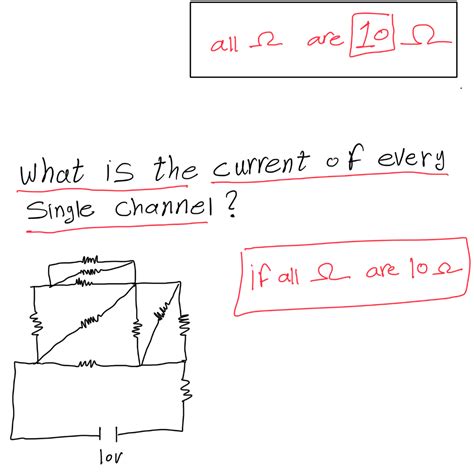 all Ω are 10 Ω
What is the current of every
Single channel?
if all Ω are 10 Ω
10V